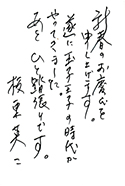 新春のお慶びを
申し上げます。
遂に玉子王子の時代が
やってきました。
あと、ひと踏張りです。
板東英二